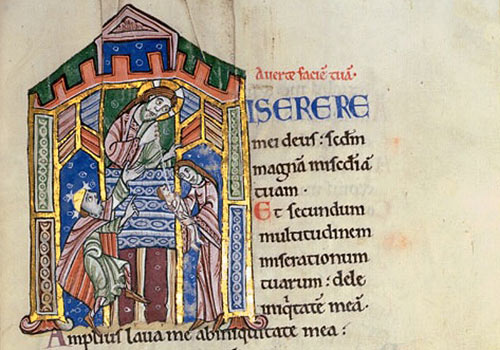 Auerte faciē tuā·
ISERERE
mei deus: scdm
magnā misc̄diā
tuam·
Et secundum
multitudinem
miserationum
tuarum: dele
iniq̇tatē meā·
Amplius laua me ab iniquitate mea: